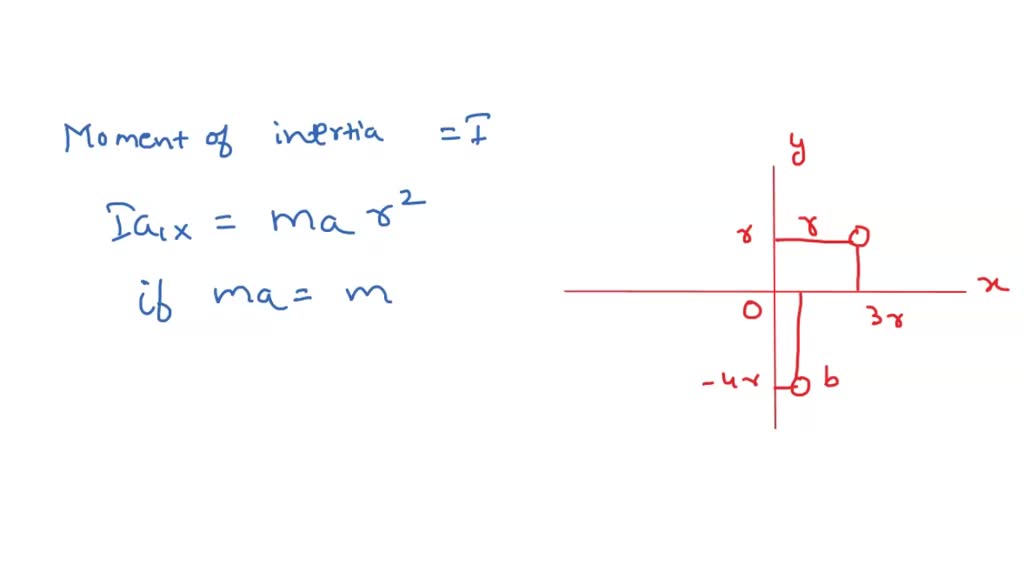 Moment of inertia = I
Ia,x = ma r²
if ma = m
y
r
r
x
0
3r
-4r
b